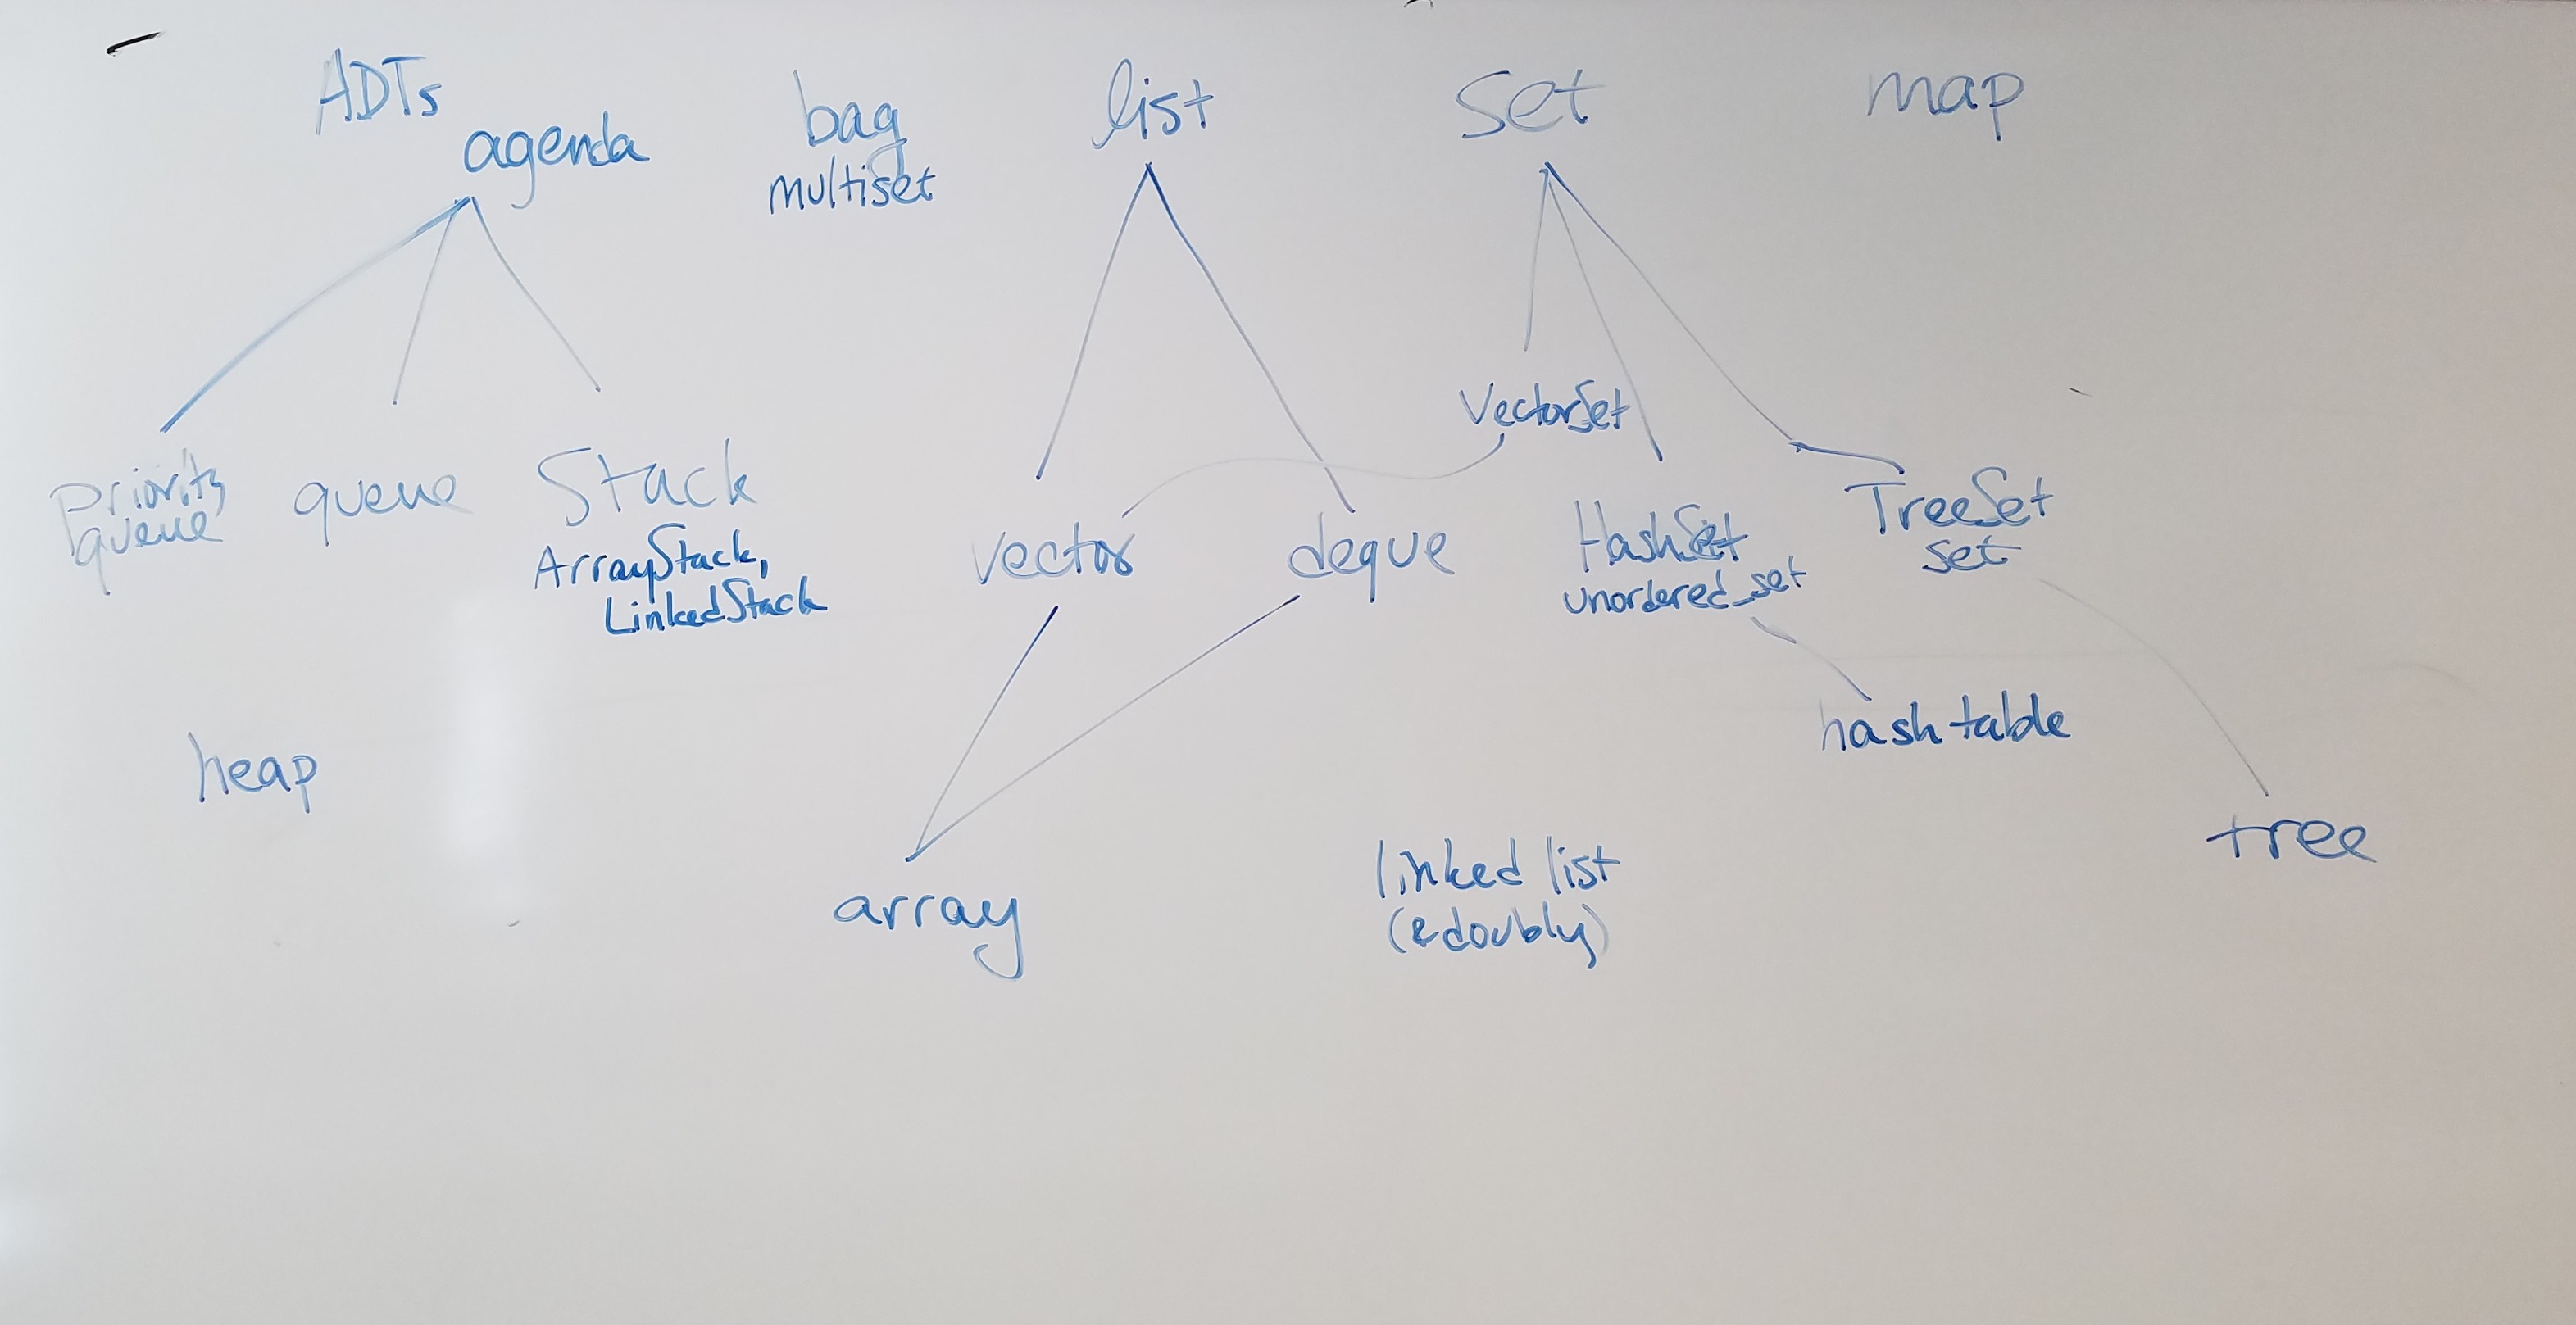 ADTs
agenda
bag
multiset
list
set
map
priority
queue
queue
Stack
ArrayStack,
LinkedStack
vector
deque
VectorSet
HashSet
unordered_set
TreeSet
set
heap
hash table
array
linked list
(& doubly)
tree